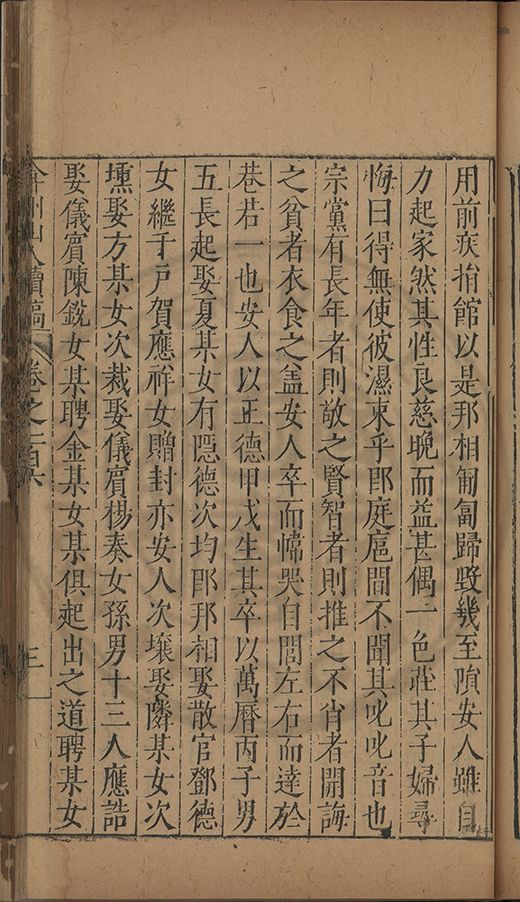 用前疾捐館以是邦相匍匐歸毀幾至隕安人雖自
力起家然其性良慈晚而益甚偶一色莊其子婦尋
悔曰得無使彼濕束乎即庭扈間不聞其叱叱音也
宗黨有長年者則敬之賢智者則推之不肖者開誨
之貧者衣食之盖安人卒而幃哭自閭左右而達於
巷若一也安人以正德甲戌生其卒以萬曆丙子男
五長起娶夏某女有隱德次均即邦相娶散官鄧德
女繼千戶賀應祥女贈封亦安人次壤娶隣某女次
壎娶方某女次裁娶儀賓楊奏女孫男十三人應誥
娶儀賓陳銳女某聘金某女某俱起出之道聘某女
弇州山人續稿 卷之一百六 三